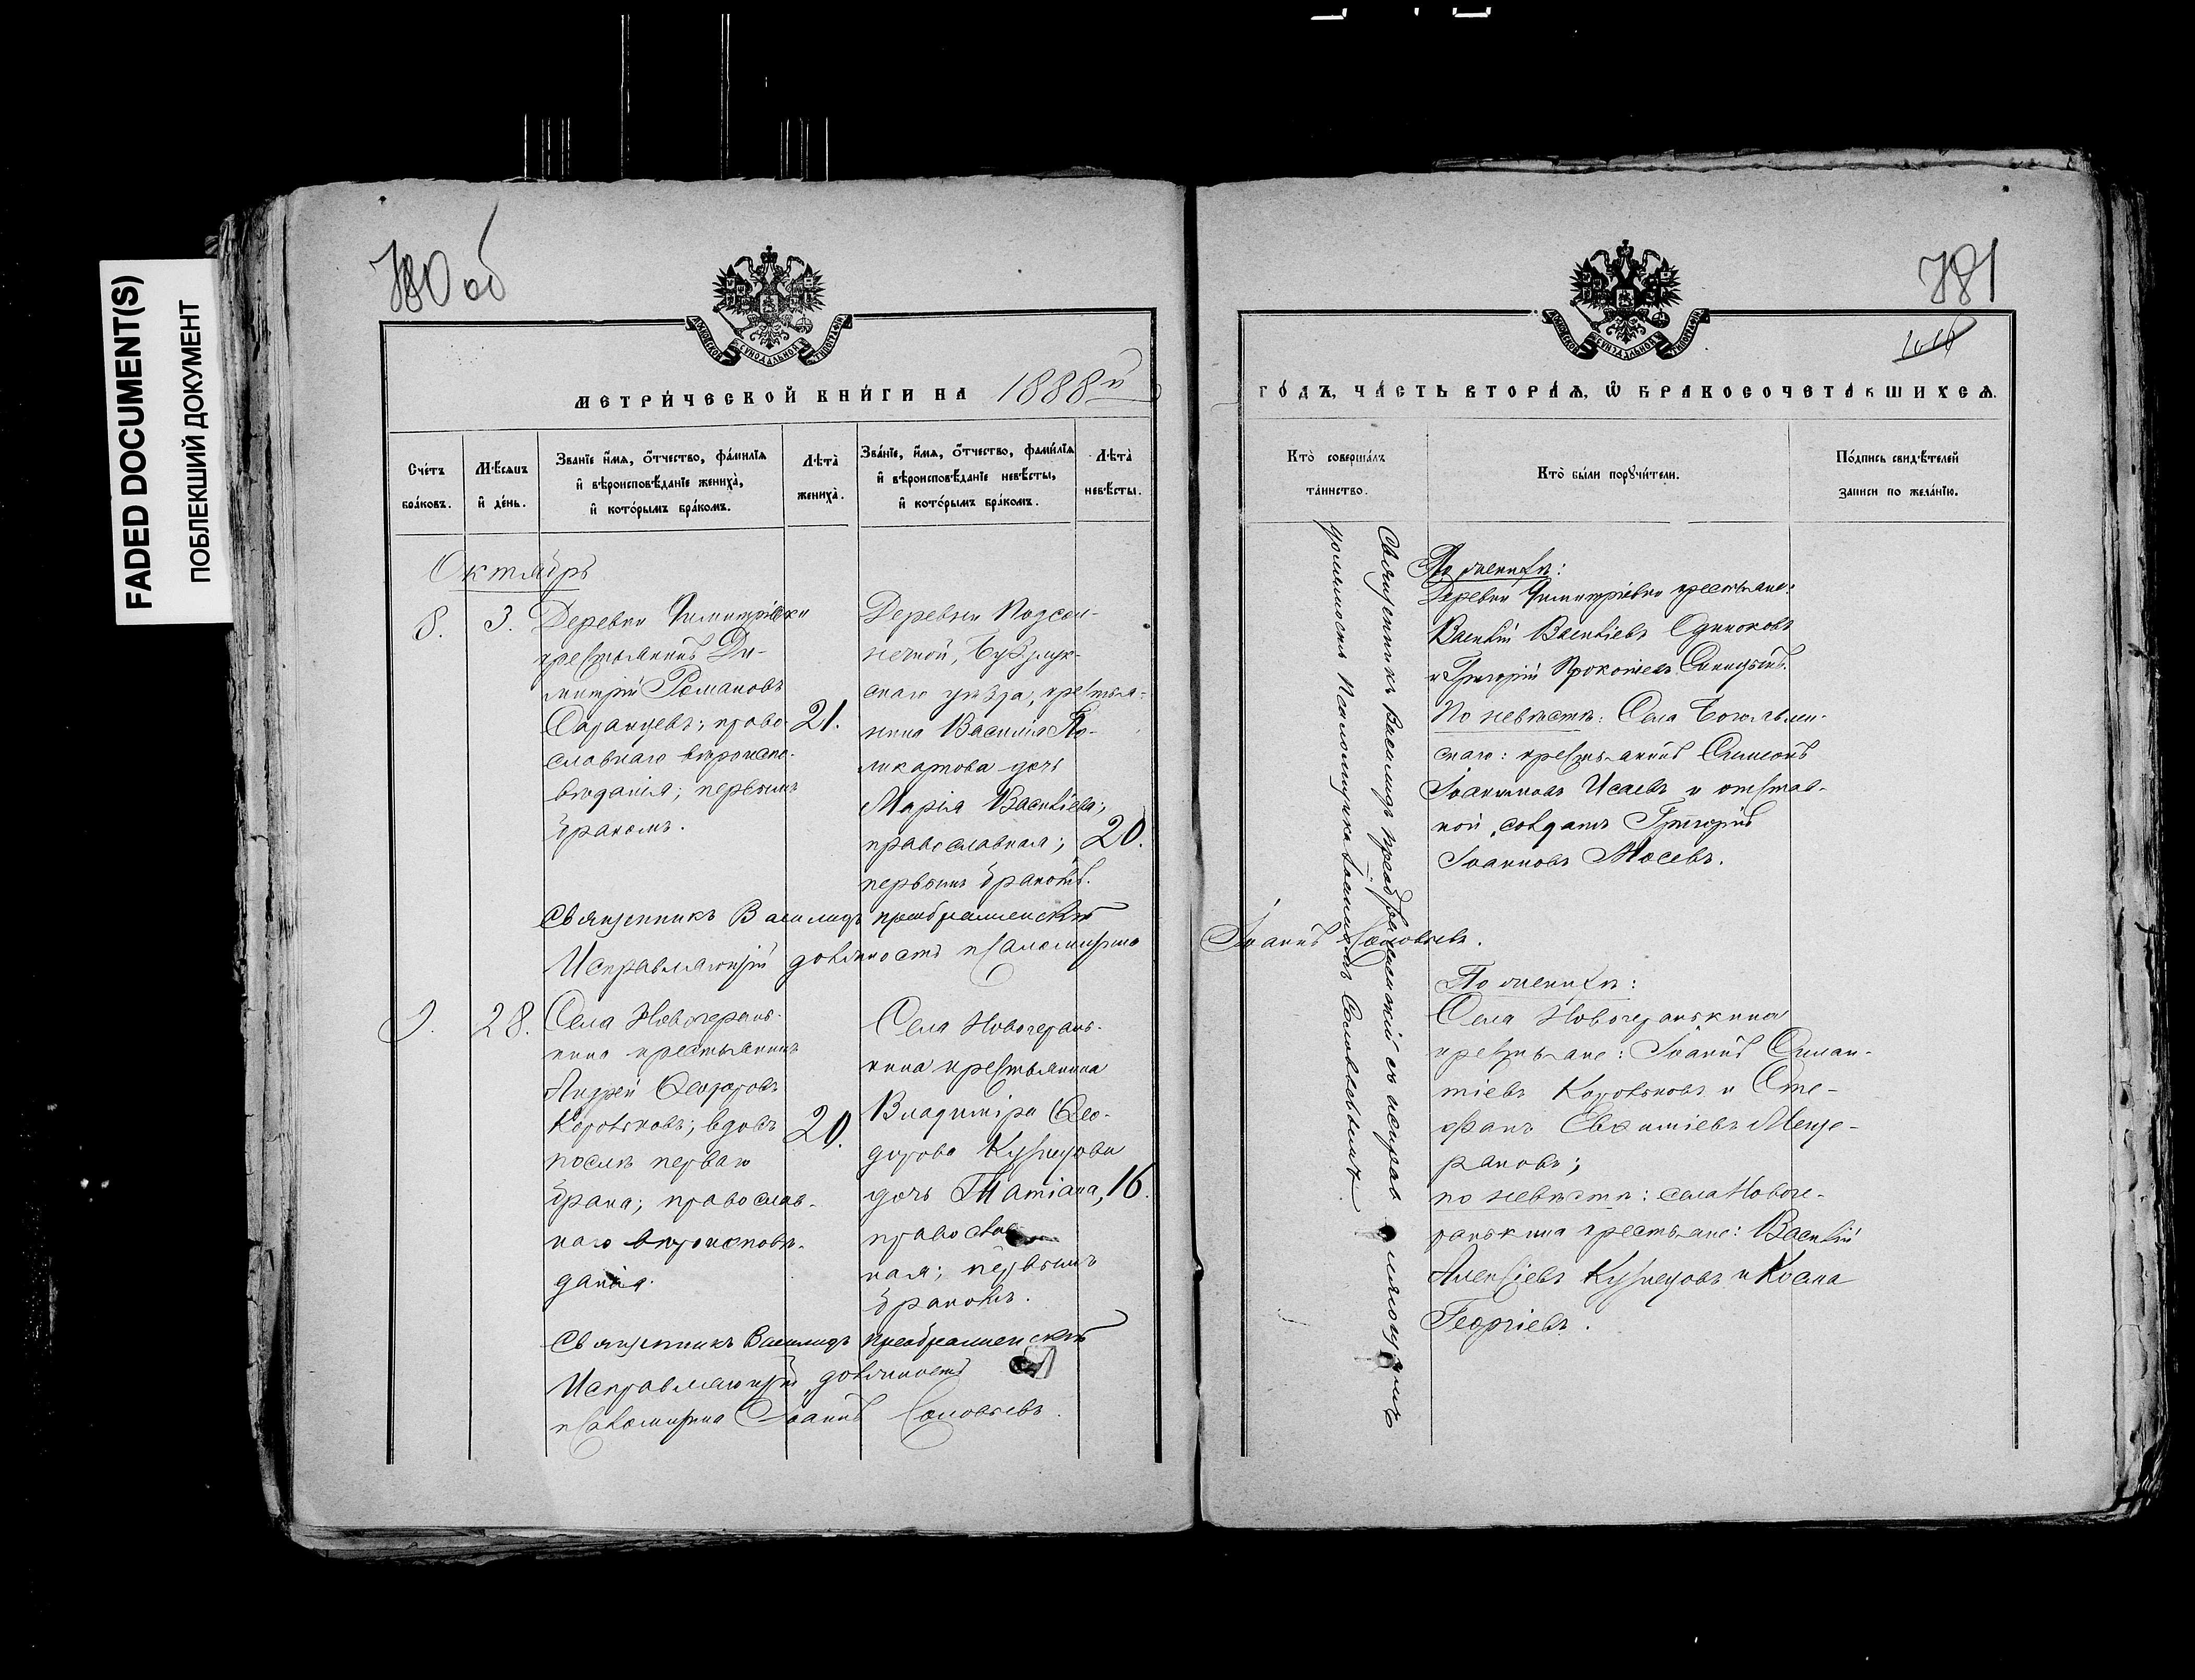 FADED DOCUMENT(S)
ПОБЛЕКШИЙ ДОКУМЕНТ
780 об
МЕТРИ́ЧЕСКОЙ КНИ́ГИ НА 1888й
Сче́тъ бра́ковъ.
Мѣ́сяцъ и҆ де́нь.
Зва́нїе и҆́мѧ, ѻ҆́тчество, фами́лїѧ и҆ вѣроисповѣ́данїе жениха̀, и҆ кото́рымъ бра́комъ.
Лѣта̀ жениха̀.
Зва́нїе, и҆́мѧ, ѻ҆́тчество, фами́лїѧ и҆ вѣроисповѣ́данїе невѣ́сты, и҆ кото́рымъ бра́комъ.
Лѣта̀ невѣ́сты.
Октябрь
8.
3.
Деревни
крестьянинъ Ди-
митрій Романовъ
Саранцевъ; право-
славнаго вѣроиспо-
вѣданія; первымъ
бракомъ.
21.
Деревни Подсол-
нечной, Бузулук-
скаго уѣзда, крестья-
нина Василія По-
ликарпова дочь
Марія Васильева;
православная;
первымъ бракомъ.
20.
Священникъ Василидъ Преображенскій
Исправляющій должность псаломщика
Іоаннъ Соловьевъ.
9.
28.
Села Новогерань-
кина крестьянинъ
Андрей Ѳеодоровъ
вдовъ
послѣ перваго
брака; православ-
наго вѣроисповѣ-
данія.
20.
Села Новогерань-
кина крестьянина
Владиміра Ѳео-
дорова Кузнецова
дочь Татіана,
православ-
ная; первымъ
бракомъ.
16.
Священникъ Василидъ Преображенскій
Исправляющій должность
псаломщика Іоаннъ Соловьевъ.
781
ГО́ДЪ, ЧА́СТЬ ВТОРА́Ѧ, Ѡ҆ БРАКОСОЧЕТА́ВШИХСѦ.
Кто̀ соверша́лъ та́инство.
Кто̀ бы́ли порꙋчи́тели.
По́дпись свидѣ́телей за́писи по жела́нїю.
Священникъ Василидъ Преображенскій съ исправляющимъ
должность псаломщика Іоанномъ Соловьевымъ.
По женихѣ:
Деревни крестьяне:
Василій Васильевъ Одиноковъ
и Григорій Прокопьевъ
По невѣстѣ: Села Богоявлен-
скаго: крестьянинъ Симеонъ
Іоанновъ Исаевъ и отстав-
ной солдатъ Григорій
Іоанновъ Мосевъ.
По женихѣ:
Села Новогеранькина
крестьяне: Іоаннъ Силан-
тіевъ и Сте-
фанъ Евѳиміевъ Меще-
раковъ;
по невѣстѣ: села Новоге-
ранькина крестьяне: Василій
Алексіевъ Кузнецовъ и Косма
Георгіевъ.